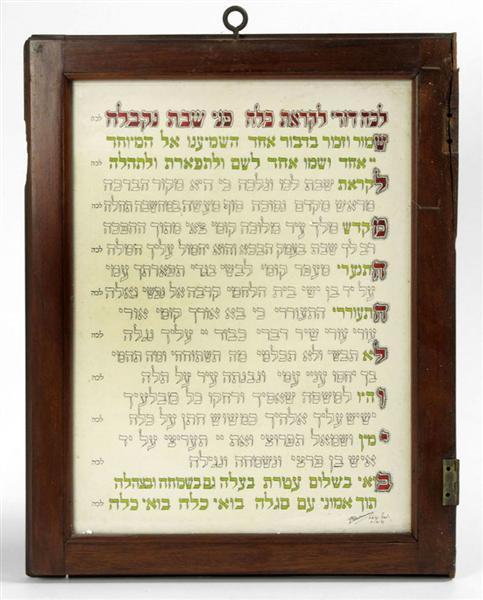 לכה דודי לקראת כלה פני שבת נקבלה לכה
שמור וזכור בדבור אחד השמיענו אל המיוחד
יי אחד ושמו אחד לשם ולתפארת ולתהלה לכה
לקראת שבת לכו ונלכה כי היא מקור הברכה
מראש מקדם נסוכה סוף מעשה במחשבה תחלה לכה
מקדש מלך עיר מלוכה קומי צאי מתוך ההפכה
רב לך שבת בעמק הבכא והוא יחמול עליך חמלה לכה
התנערי מעפר קומי לבשי בגדי תפארתך עמי
על יד בן ישי בית הלחמי קרבה אל נפשי גאלה לכה
התעוררי התעוררי כי בא אורך קומי אורי
עורי עורי שיר דברי כבוד יי עליך נגלה לכה
לא תבשי ולא תכלמי מה תשתוחחי ומה תהמי
בך יחסו עניי עמי ונבנתה עיר על תלה לכה
והיו למשסה שאסיך ורחקו כל מבלעיך
ישיש עליך אלהיך כמשוש חתן על כלה לכה
ימין ושמאל תפרוצי ואת יי תעריצי על יד
איש בן פרצי ונשמחה ונגילה לכה
בואי בשלום עטרת בעלה גם בשמחה ובצהלה
תוך אמוני עם סגלה בואי כלה בואי כלה לכה